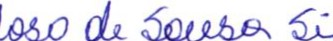 loso de Sousa Si